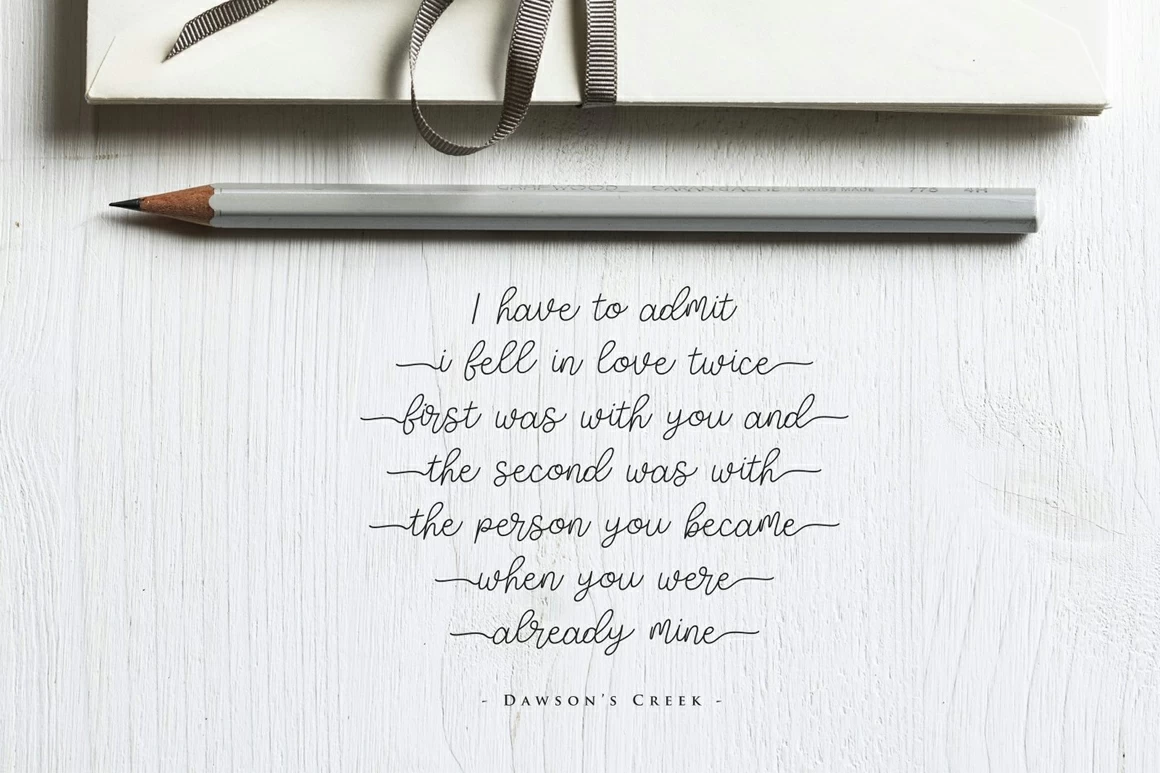 CARAN D'ACHE SWISS MADE 775 4H
I have to admit
i fell in love twice
first was with you and
the second was with
the person you became
when you were
already mine
- DAWSON'S CREEK -